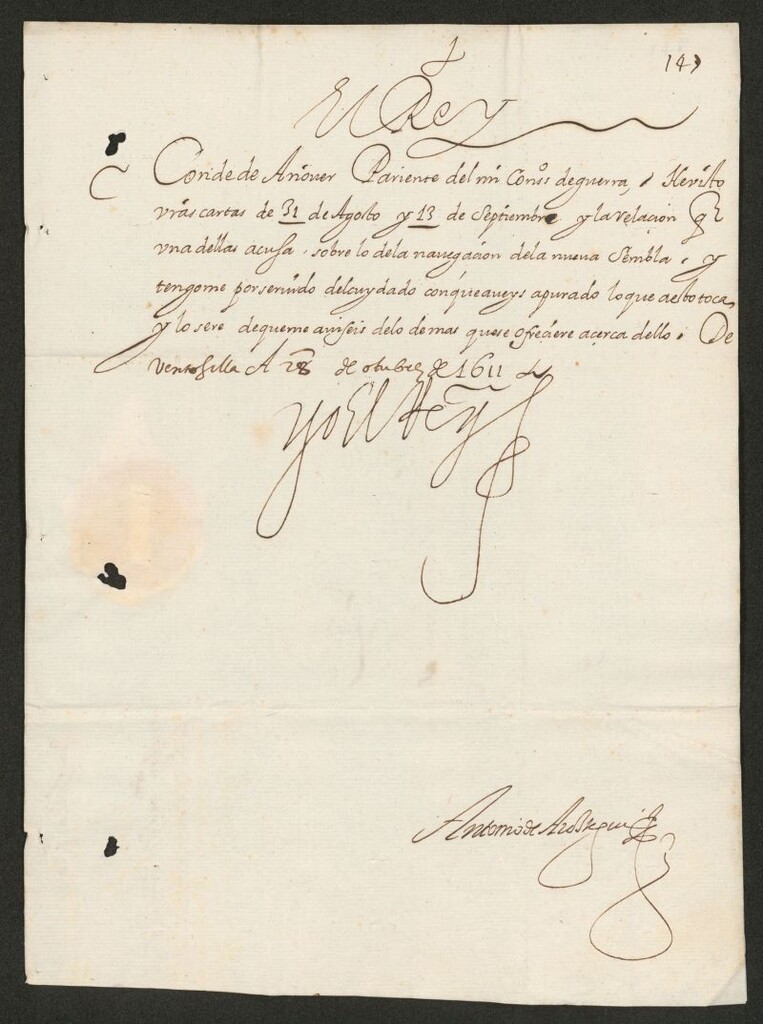 149
El Rey
Conde de Añover Pariente del mi Cons.º de guerra, He visto
vras cartas de 31 de Agosto y 13 de Septiembre y la relacion q̃
vna dellas acussa, sobre lo dela nauegacion dela nueua Sembla, y
tengome por seruido del cuydado con que aueys apurado lo que a esto toca,
y lo sere de que me auiseis delo demas que se ofreciere acerca dello. De
Ventosilla A 28 de otubre de 1611
Yo El Rey
Antonio de Arostegui